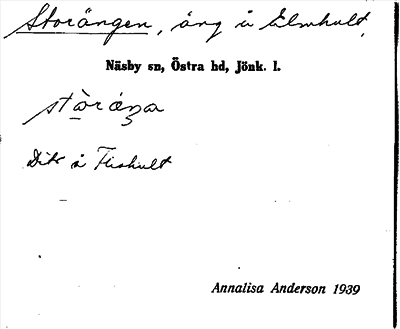 Storängen, äng å Elmhult,
Näsby sn, Östra hd, Jönk. l.
Dito å Fishult
Annalisa Anderson 1939